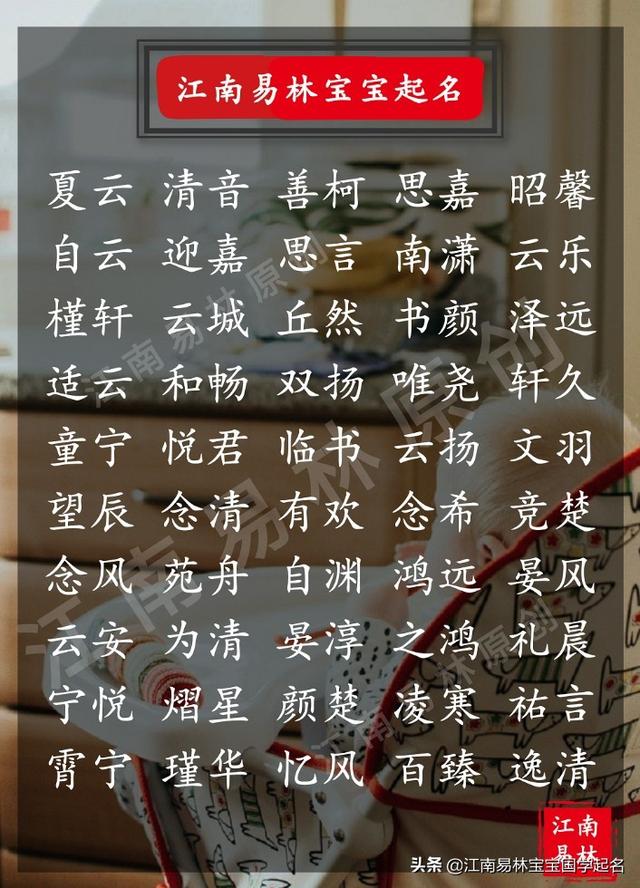 江南易林宝宝起名
夏云 清音 善柯 思嘉 昭馨
自云 迎嘉 思言 南潇 云乐
槿轩 云城 丘然 书颜 泽远
适云 和畅 双扬 唯尧 轩久
童宁 悦君 临书 云扬 文羽
望辰 念清 有欢 念希 竞楚
念风 苑舟 自渊 鸿远 晏风
云安 为清 晏淳 之鸿 礼晨
宁悦 熠星 颜楚 凌寒 祐言
霄宁 瑾华 忆风 百臻 逸清
江南易林原创
江南易林原创
江南易林原创
江南
易林
头条 @江南易林宝宝国学起名